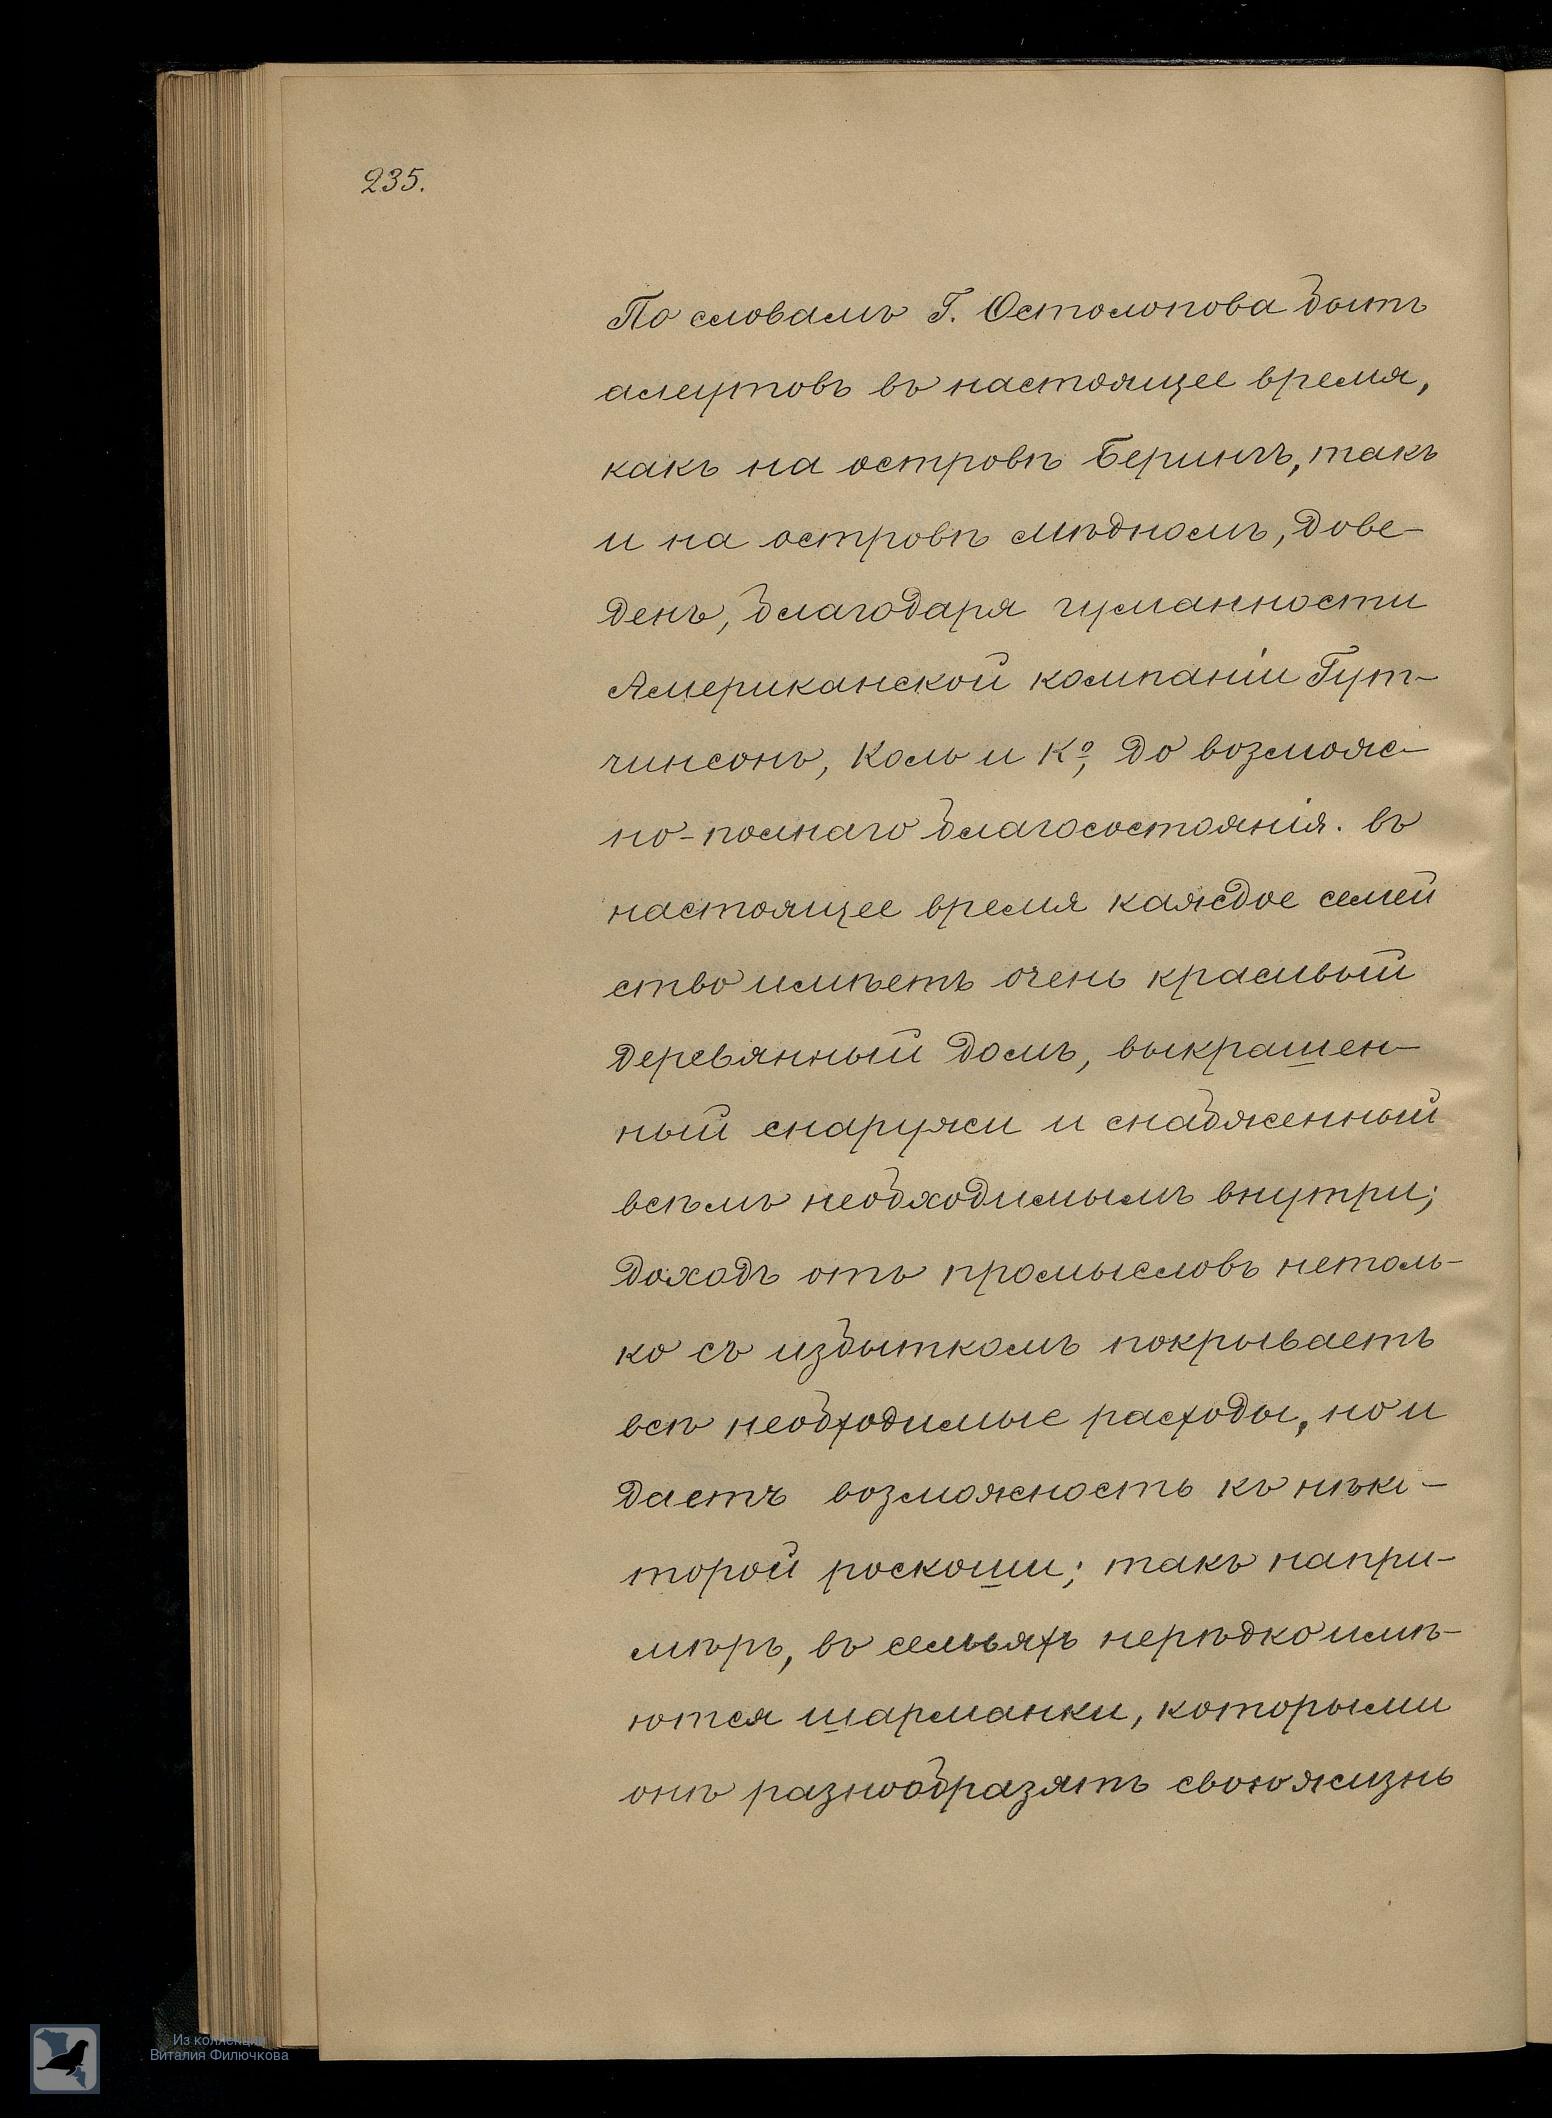 235.
По словамъ Г. Остолопова бытъ
алеутовъ въ настоящее время,
какъ на островѣ Берингъ, такъ
и на островѣ Мѣдномъ, дове-
денъ, благодаря гуманности
Американской компаніи Гут-
чинсонъ, Коль и Кº, до возмож-
но-полнаго благосостоянія. въ
настоящее время каждое семей
ство имѣетъ очень красивый
деревянный домъ, выкрашен-
ный снаружи и снабженный
всѣмъ необходимымъ внутри;
доходъ отъ промысловъ нетоль-
ко съ избыткомъ покрываетъ
всѣ необходимые расходы, но и
даетъ возможность къ нѣко-
торой роскоши; такъ напри-
мѣръ, въ семьяхъ нерѣдко имѣ-
ются шарманки, которыми
онѣ разнообразятъ свою жизнь
Из коллекции
Виталия Филючкова